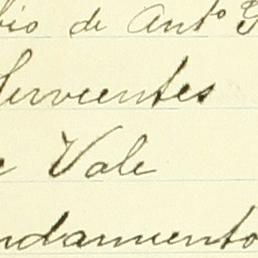 bio de Anto G
Servientes
e Vale
ndamiento